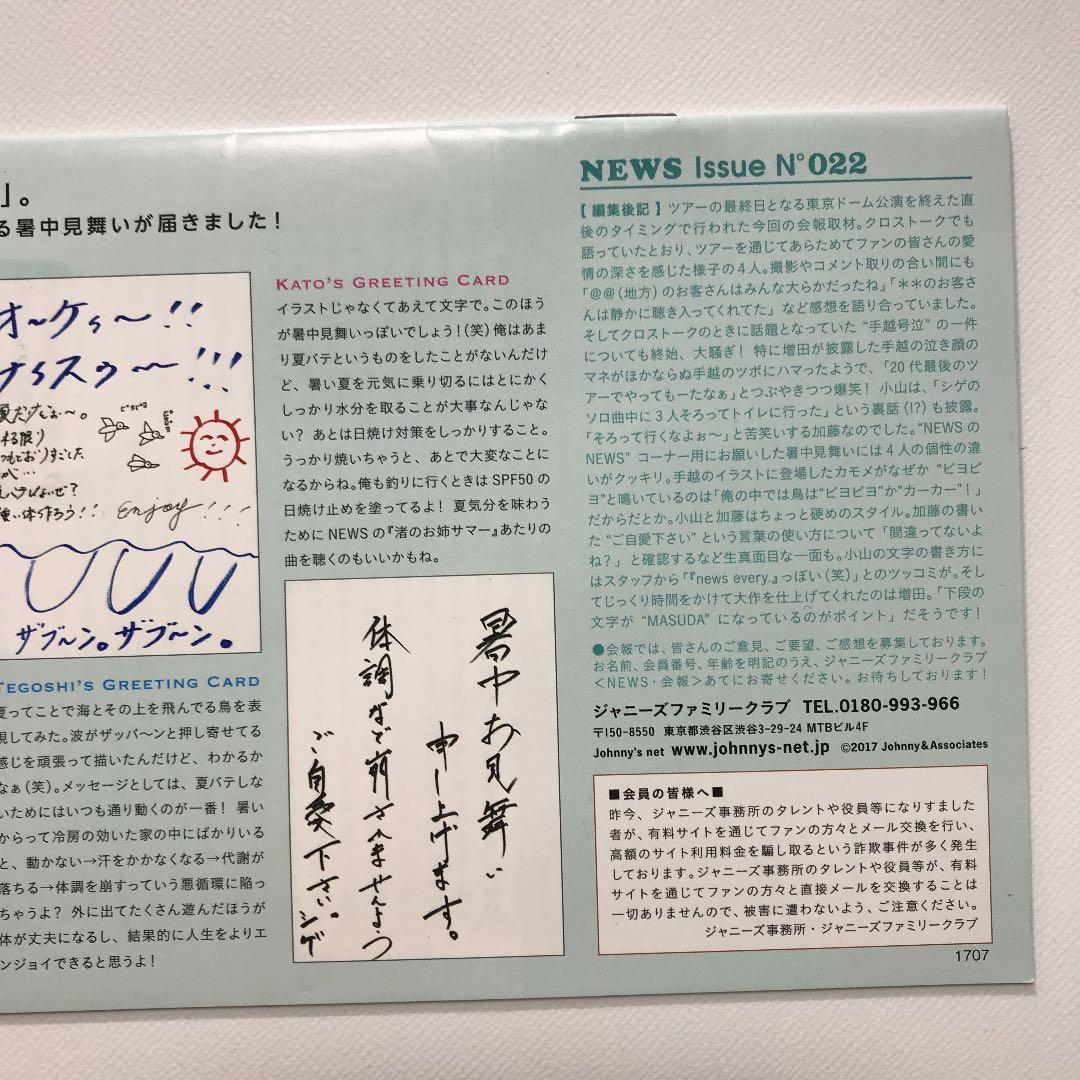 」。
る暑中見舞いが届きました！
オ〜ケィ〜！！
ナイスゥ〜！！！
ピヨピヨ
Enjoy！！！
ザブ〜ン。ザブ〜ン。
TEGOSHI'S GREETING CARD
夏ってことで海とその上を飛んでる鳥を表
現してみた。波がザッパ〜ンと押し寄せてる
感じを頑張って描いたんだけど、わかるか
なぁ（笑）。メッセージとしては、夏バテしな
いためにはいつも通り動くのが一番！ 暑い
からって冷房の効いた家の中にばかりいる
と、動かない→汗をかかなくなる→代謝が
落ちる→体調を崩すっていう悪循環に陥っ
ちゃうよ？ 外に出てたくさん遊んだほうが
体が丈夫になるし、結果的に人生をよりエ
ンジョイできると思うよ！
KATO'S GREETING CARD
イラストじゃなくてあえて文字で。このほう
が暑中見舞いっぽいでしょう！（笑）俺はあま
り夏バテというものをしたことがないんだけ
ど、暑い夏を元気に乗り切るにはとにかく
しっかり水分を取ることが大事なんじゃな
い？ あとは日焼け対策をしっかりすること。
うっかり焼いちゃうと、あとで大変なことに
なるからね。俺も釣りに行くときはSPF50の
日焼け止めを塗ってるよ！ 夏気分を味わう
ためにNEWSの『渚のお姉サマー』あたりの
曲を聴くのもいいかもね。
暑中お見舞い
申し上げます。
体調など崩されませんよう
ご自愛下さい。シゲ
NEWS Issue N°022
【編集後記】ツアーの最終日となる東京ドーム公演を終えた直
後のタイミングで行われた今回の会報取材。クロストークでも
語っていたとおり、ツアーを通じてあらためてファンの皆さんの愛
情の深さを感じた様子の4人。撮影やコメント取りの合い間にも
「@@（地方）のお客さんはみんな大らかだったね」「＊＊のお客さ
んは静かに聴き入ってくれてた」など感想を語り合っていました。
そしてクロストークのときに話題となっていた“手越号泣”の一件
についても終始、大騒ぎ！ 特に増田が披露した手越の泣き顔の
マネがほかならぬ手越のツボにハマったようで、「20代最後のツ
アーでやってもーたなぁ」とつぶやきつつ爆笑！ 小山は、「シゲの
ソロ曲中に3人そろってトイレに行った」という裏話（!?）も披露。
「そろって行くなよぉ〜」と苦笑いする加藤なのでした。“NEWSの
NEWS”コーナー用にお願いした暑中見舞いには4人の個性の違
いがクッキリ。手越のイラストに登場したカモメがなぜか“ピヨピ
ヨ”と鳴いているのは「俺の中では鳥は“ピヨピヨ”か“カーカー”！」
だからだとか。小山と加藤はちょっと硬めのスタイル。加藤の書い
た“ご自愛下さい”という言葉の使い方について「間違ってないよ
ね？」と確認するなど生真面目な一面も。小山の文字の書き方に
はスタッフから「『news every.』っぽい（笑）」とのツッコミが。そし
てじっくり時間をかけて大作を仕上げてくれたのは増田。「下段の
文字が“MASUDA”になっているのがポイント」だそうです！
●会報では、皆さんのご意見、ご要望、ご感想を募集しております。
お名前、会員番号、年齢を明記のうえ、ジャニーズファミリークラブ
＜NEWS・会報＞あてにお寄せください。お待ちしております！
ジャニーズファミリークラブ TEL.0180-993-966
〒150-8550 東京都渋谷区渋谷3-29-24 MTBビル4F
Johnny's net www.johnnys-net.jp ©2017 Johnny&Associates
■会員の皆様へ■
昨今、ジャニーズ事務所のタレントや役員等になりすました
者が、有料サイトを通じてファンの方々とメール交換を行い、
高額のサイト利用料金を騙し取るという詐欺事件が多く発生
しております。ジャニーズ事務所のタレントや役員等が、有料
サイトを通じてファンの方々と直接メールを交換することは
一切ありませんので、被害に遭わないよう、ご注意ください。
ジャニーズ事務所・ジャニーズファミリークラブ
1707